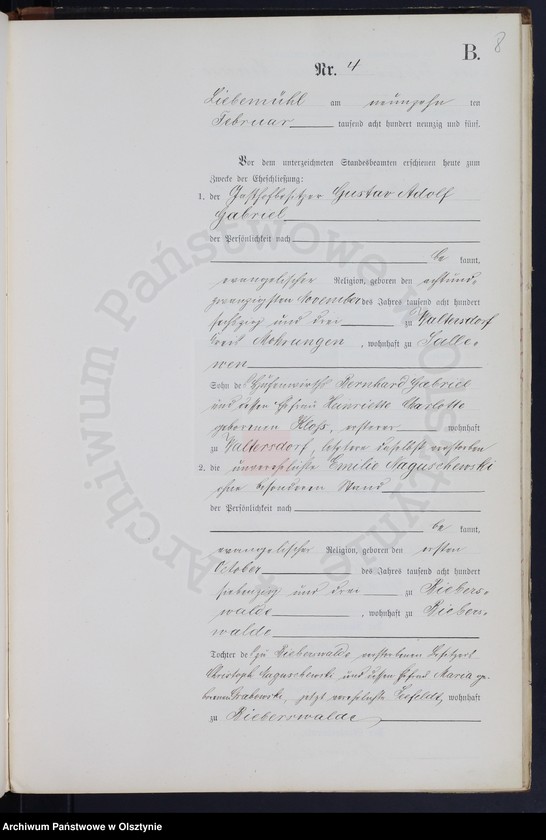 B. 8
Nr. 4
Liebemühl am neunzehn ten
Februar tausend acht hundert neunzig und fünf.
Vor dem unterzeichneten Standesbeamten erschienen heute zum
Zwecke der Eheschließung:
1. der Gasthofbesitzer Gustav Adolf
Gabriel
der Persönlichkeit nach
be kannt,
evangelischer Religion, geboren den achtund-
zwanzigsten November des Jahres tausend acht hundert
sechszig und drei zu Waltersdorf
Kreis Mohrungen, wohnhaft zu
wen
Sohn des Hufenwirths Bernhard Gabriel
und dessen Ehefrau Henriette Charlotte
geborenen Kloß, ersterer wohnhaft
zu Waltersdorf, letztere daselbst verstorben
2. die unverehelichte Emilie Naguschewski
ohne besonderen Stand
der Persönlichkeit nach
be kannt,
evangelischer Religion, geboren den ersten
October des Jahres tausend acht hundert
siebenzig und drei zu Biebers-
walde, wohnhaft zu Biebers-
walde
Tochter des zu Bieberswalde verstorbenen Besitzers
Christoph Naguschewski und dessen Ehefrau Maria ge-
borenen Grabowski, jetzt verehelichte wohnhaft
zu Bieberswalde
Archiwum Państwowe w Olsztynie
Archiwum Państwowe w Olsztynie